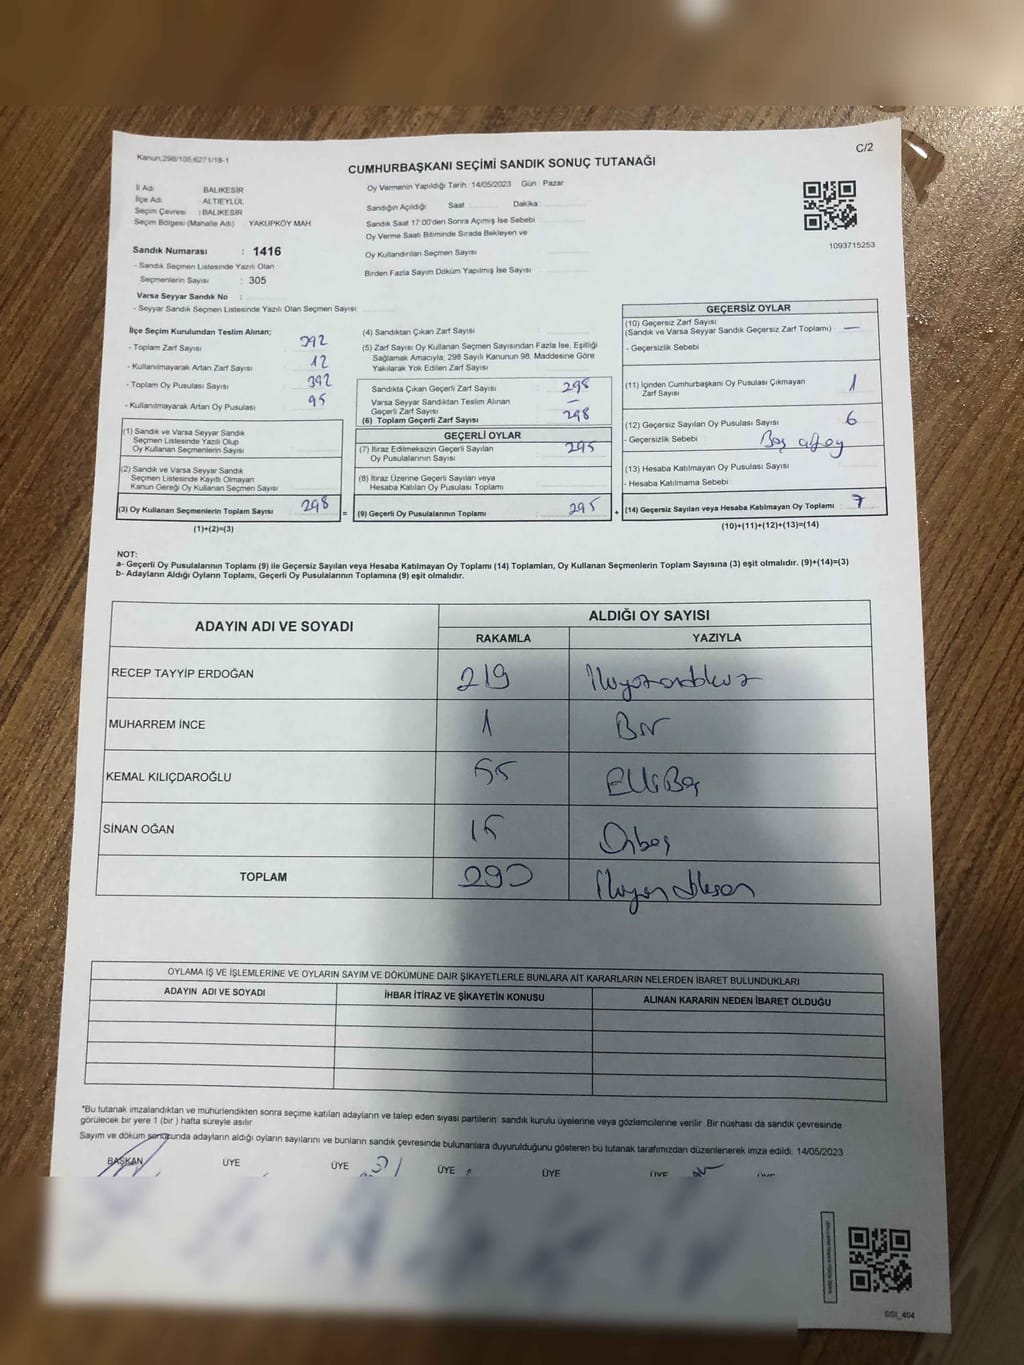 Kanun:298/105;6271/18-1
C/2
CUMHURBAŞKANI SEÇİMİ SANDIK SONUÇ TUTANAĞI
İl Adı : BALIKESİR
İlçe Adı : ALTIEYLÜL
Seçim Çevresi : BALIKESİR
Seçim Bölgesi (Mahalle Adı) : YAKUPKÖY MAH
Sandık Numarası : 1416
- Sandık Seçmen Listesinde Yazılı Olan
Seçmenlerin Sayısı : 305
Varsa Seyyar Sandık No :
- Seyyar Sandık Seçmen Listesinde Yazılı Olan Seçmen Sayısı:
Oy Vermenin Yapıldığı Tarih :14/05/2023 Gün : Pazar
Sandığın Açıldığı Saat : Dakika:
Sandık Saat 17:00'den Sonra Açımış İse Sebebi :
Oy Verme Saati Bitiminde Sırada Bekleyen ve
Oy Kullandırılan Seçmen Sayısı :
Birden Fazla Sayım Döküm Yapılmış İse Sayısı :
1093715253
İlçe Seçim Kurulundan Teslim Alınan;
- Toplam Zarf Sayısı : 392
- Kullanılmayarak Artan Zarf Sayısı : 12
- Toplam Oy Pusulası Sayısı : 392
- Kullanılmayarak Artan Oy Pusulası : 95
(1) Sandık ve Varsa Seyyar Sandık
Seçmen Listesinde Yazılı Olup
Oy Kullanan Seçmenlerin Sayısı :
(2) Sandık ve Varsa Seyyar Sandık
Seçmen Listesinde Kayıtlı Olmayan
Kanun Gereği Oy Kullanan Seçmen Sayısı :
(3) Oy Kullanan Seçmenlerin Toplam Sayısı : 298
(1)+(2)=(3)
=
(4) Sandıktan Çıkan Zarf Sayısı :
(5) Zarf Sayısı Oy Kullanan Seçmen Sayısından Fazla İse, Eşitliği
Sağlamak Amacıyla; 298 Sayılı Kanunun 98. Maddesine Göre
Yakılarak Yok Edilen Zarf Sayısı :
Sandıkta Çıkan Geçerli Zarf Sayısı : 298
Varsa Seyyar Sandıktan Teslim Alınan
Geçerli Zarf Sayısı : —
(6) Toplam Geçerli Zarf Sayısı : 298
GEÇERLİ OYLAR
(7) İtiraz Edilmeksizin Geçerli Sayılan
Oy Pusulalarının Sayısı : 295
(8) İtiraz Üzerine Geçerli Sayılan veya
Hesaba Katılan Oy Pusulası Toplamı :
(9) Geçerli Oy Pusulalarının Toplamı : 295
+
GEÇERSİZ OYLAR
(10) Geçersiz Zarf Sayısı
(Sandık ve Varsa Seyyar Sandık Geçersiz Zarf Toplamı) : —
- Geçersizlik Sebebi :
(11) İçinden Cumhurbaşkanı Oy Pusulası Çıkmayan
Zarf Sayısı : 1
(12) Geçersiz Sayılan Oy Pusulası Sayısı : 6
- Geçersizlik Sebebi : Boş
(13) Hesaba Katılmayan Oy Pusulası Sayısı :
- Hesaba Katılmama Sebebi :
(14) Geçersiz Sayılan veya Hesaba Katılmayan Oy Toplamı : 7
(10)+(11)+(12)+(13)=(14)
NOT:
a- Geçerli Oy Pusulalarının Toplamı (9) ile Geçersiz Sayılan veya Hesaba Katılmayan Oy Toplamı (14) Toplamları, Oy Kullanan Seçmenlerin Toplam Sayısına (3) eşit olmalıdır. (9)+(14)=(3)
b- Adayların Aldığı Oyların Toplamı, Geçerli Oy Pusulalarının Toplamına (9) eşit olmalıdır.
ADAYIN ADI VE SOYADI
ALDIĞI OY SAYISI
RAKAMLA YAZIYLA
RECEP TAYYİP ERDOĞAN 219 İkiyüzondokuz
MUHARREM İNCE 1 Bir
KEMAL KILIÇDAROĞLU 55 Elli Beş
SİNAN OĞAN 15 Onbeş
TOPLAM 290 İkiyüzdoksan
OYLAMA İŞ VE İŞLEMLERİNE VE OYLARIN SAYIM VE DÖKÜMÜNE DAİR ŞİKAYETLERLE BUNLARA AİT KARARLARIN NELERDEN İBARET BULUNDUKLARI
ADAYIN ADI VE SOYADI İHBAR İTİRAZ VE ŞİKAYETİN KONUSU ALINAN KARARIN NEDEN İBARET OLDUĞU
*Bu tutanak imzalandıktan ve mühürlendikten sonra seçime katılan adayların ve talep eden siyasi partilerin sandık kurulu üyelerine veya gözlemcilerine verilir. Bir nüshası da sandık çevresinde
görülecek bir yere 1 (bir ) hafta süreyle asılır.
Sayım ve döküm sonucunda adayların aldığı oyların sayılarını ve bunların sandık çevresinde bulunanlara duyurulduğunu gösteren bu tutanak tarafımızdan düzenlenerek imza edildi. 14/05/2023
BAŞKAN ÜYE ÜYE ÜYE ÜYE ÜYE ÜYE
SSI_404